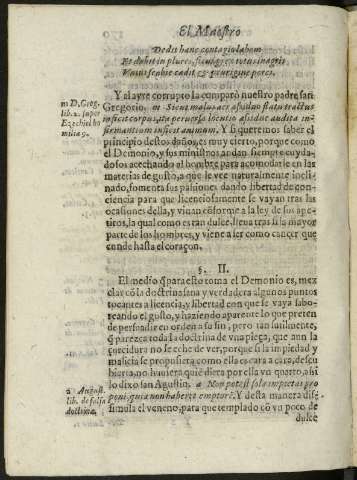 El Maestro
Dedit hanc contagio labem
Et dabit in plures, sicut grex totus in agris
Vnius scabie cadit & porrigine porci.
Y al ayre corrupto la comparò nuestro padre san
Gregorio, m Sicut malus aer asiduo flatu tractus
inficit corpus, ita peruersa locutio asidue audita in-
firmantium inficit animum. Y si queremos saber el
principio destos daños, es muy cierto, porque como
el Demonio, y sus ministros andan siempre cuyda-
dosos acechando al hombre para acomodarle en las
materias de gusto, a que le vee naturalmente incli-
nado, fomenta sus pasiones dando libertad de con-
ciencia para que licenciosamente se vayan tras las
ocasiones della, y viuan cõforme a la ley de sus ape-
titos, la qual como es tan dulce, lleua tras si la mayor
parte de los hombres, y viene a ser como cancer que
cunde hasta el coraçon.
m D. Greg.
lib. 2. super
Ezechiel ho
milia 9.
§. II.
El medio q̃ para esto toma el Demonio es, mez
clar cõ la doctrina sana y verdadera algunos puntos
tocantes a licencia, y libertad con que se vaya sabo-
reando el gusto, y haziendo aparente lo que preten
de persuadir en orden a su fin, pero tan sutilmente,
q̃ parezca toda la doctrina de vna pieça, que aun la
çurcidura no se eche de ver, porque si la impiedad y
malicia se propusiera como ella es rata a cara, descu
bierta, no huuiera quiẽ diera por ella vn quarto, assi
lo dixo san Agustin, a Non potest sola impietas pro
poni, quia non haberet emptorẽ. Y desta manera disi
simula el veneno, para que templado cõ vn poco de
dulce
a August.
lib. de falsa
doctrina,